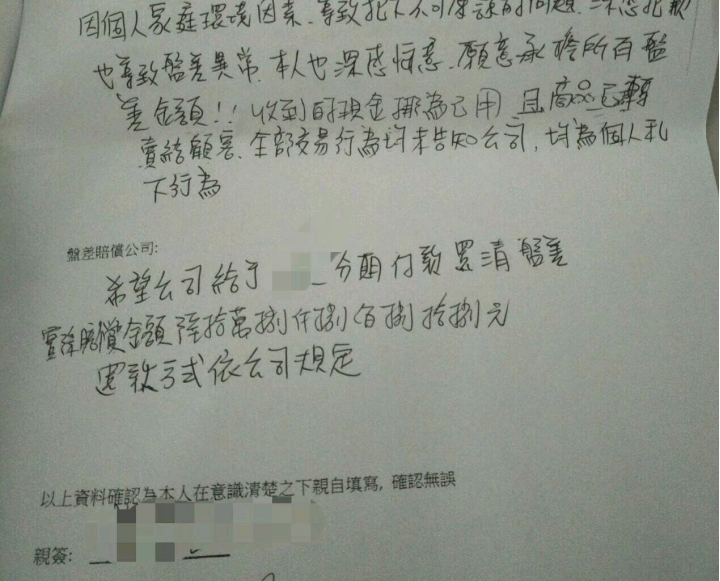 因個人家庭環境因素、導致犯下不可原諒的問題.深感抱歉
也導致盤差異常.本人也深感愧意.願意承擔所有盤
差金額!!收到的現金挪為己用 且商品已轉
賣給顧客.全部交易行為均未告知公司,均為個人私
下行為
盤差賠償公司:
希望公司給于 分期付款還清盤差
實際賠償金額 拾萬捌仟捌佰捌拾捌元
還款方式依公司規定
以上資料確認為本人在意識清楚之下親自填寫,確認無誤
親簽: